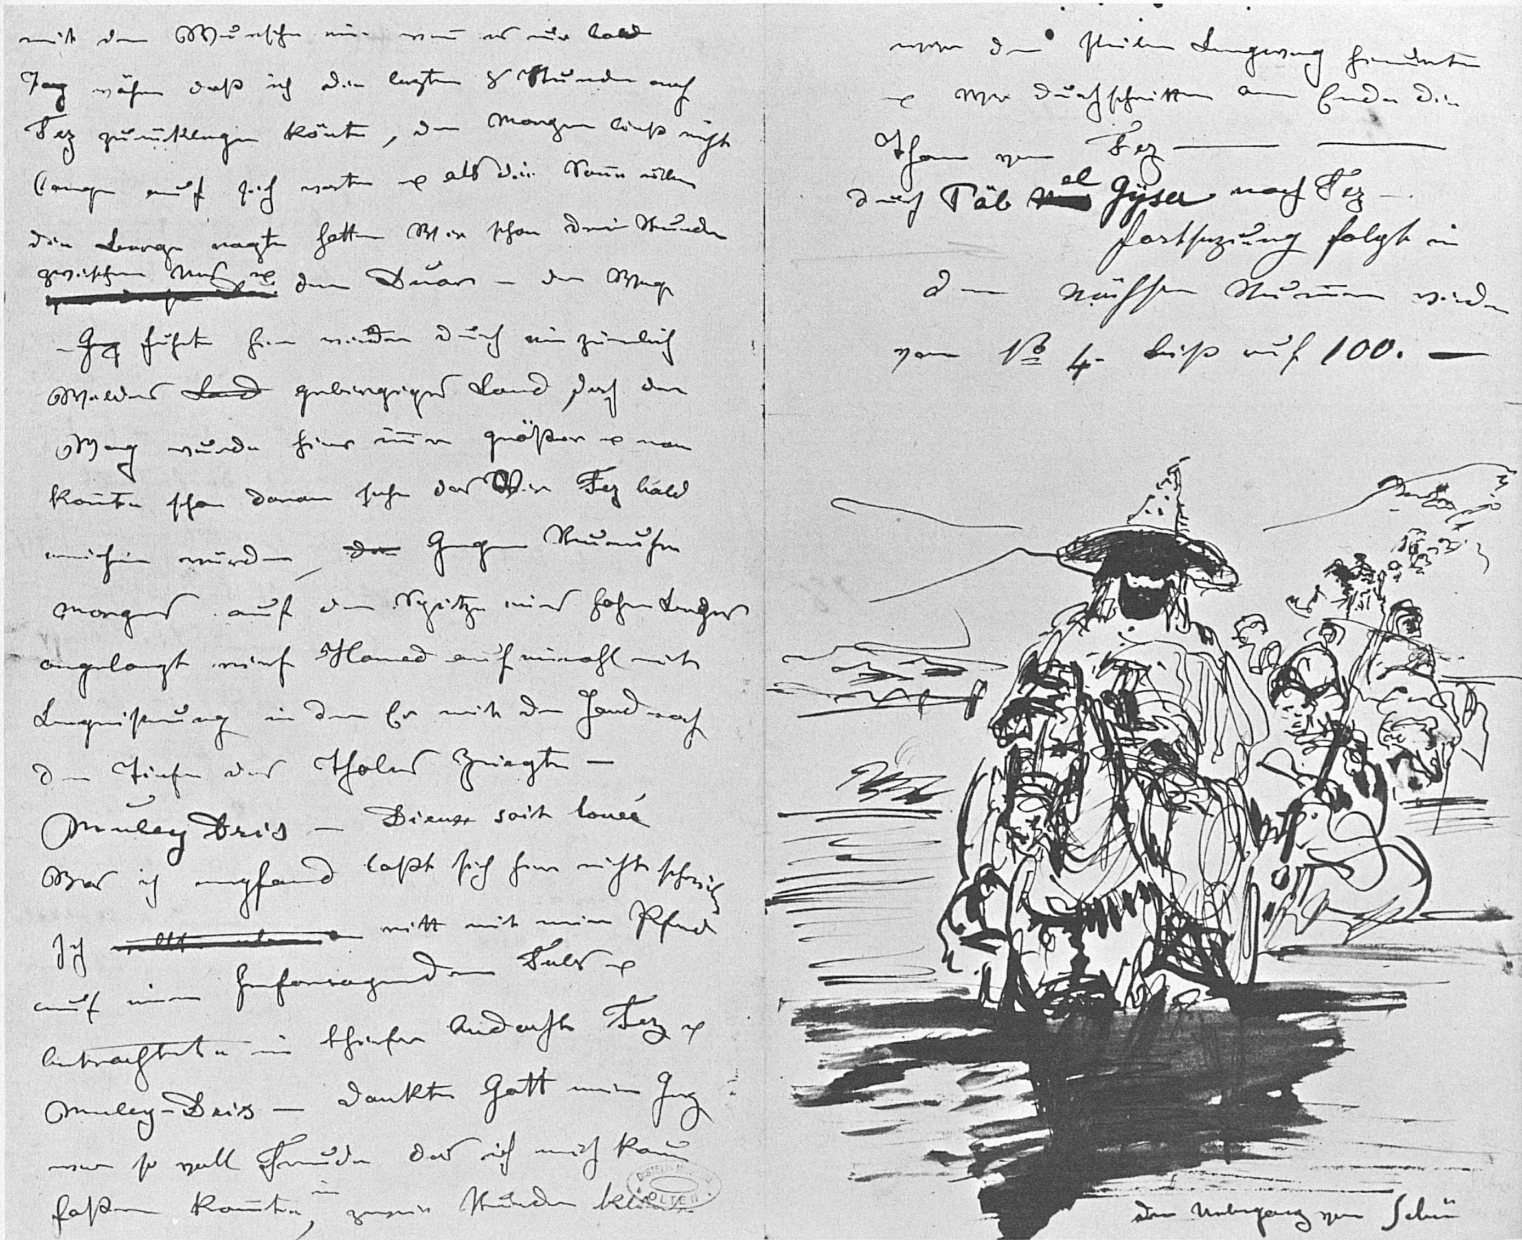 mit dem Wunsche wie wenn es nur bald
Tag wäre daß ich die letzten 8 Stunden nach
Fez zurücklegen könte, der Morgen ließ nicht
lange auf sich warten & als die Sonne über
die Berge ragte hatten Wir schon drei Stunden
zwischen Uns & dem Duar – der Weg
führte hier wieder durch ein ziemlich
Wildes Land gebirgiges Land, doch der
Weg wurde hier im̄er größer & man
kon̄te schon daran sehn das Wir Fez bald
erreichen würden, Gegen Neunuhr
Morgens auf der Spitze eines hohen Berges
angelangt rief Hamed auf einmahl mit
Begeisterung in dem Er mit der Hand nach
der Tiefe des Thales Zeigte –
Muley Dris – Dieux soit loueé
Was ich empfand laßt sich hier nicht schreib
Ich ritt mit mein Pferd
auf einen hervorragenden Fels &
betrachtete in thiefer Andacht Fez &
Muley-Dris – dankte Gott mein Herz
war so voll Freude das ich mich kaum
faßen kon̄te, in zwei Stunden
waren den steilen Bergweg hinunter
& Wir durchschritten am Ende die
Thore von Fez — —
durch Täb el Gÿsa nach Fez –
fortsezung folgt in
den nächsten Num̄ern wieder
von No 4. biß auf 100. —
OLTEN
den Uebergang vom Sebu